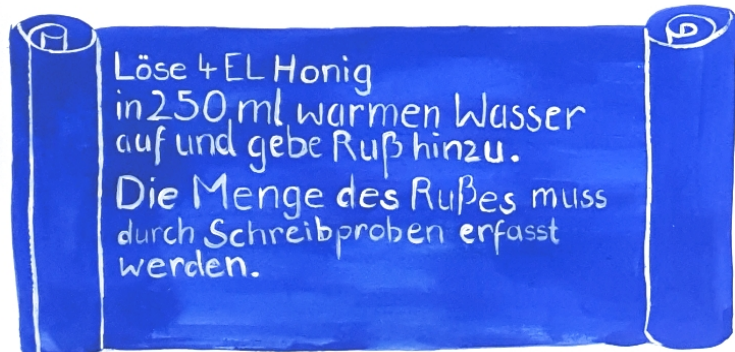 Löse 4 EL Honig
in 250 ml warmen Wasser
auf und gebe Ruß hinzu.
Die Menge des Rußes muss
durch Schreibproben erfasst
werden.